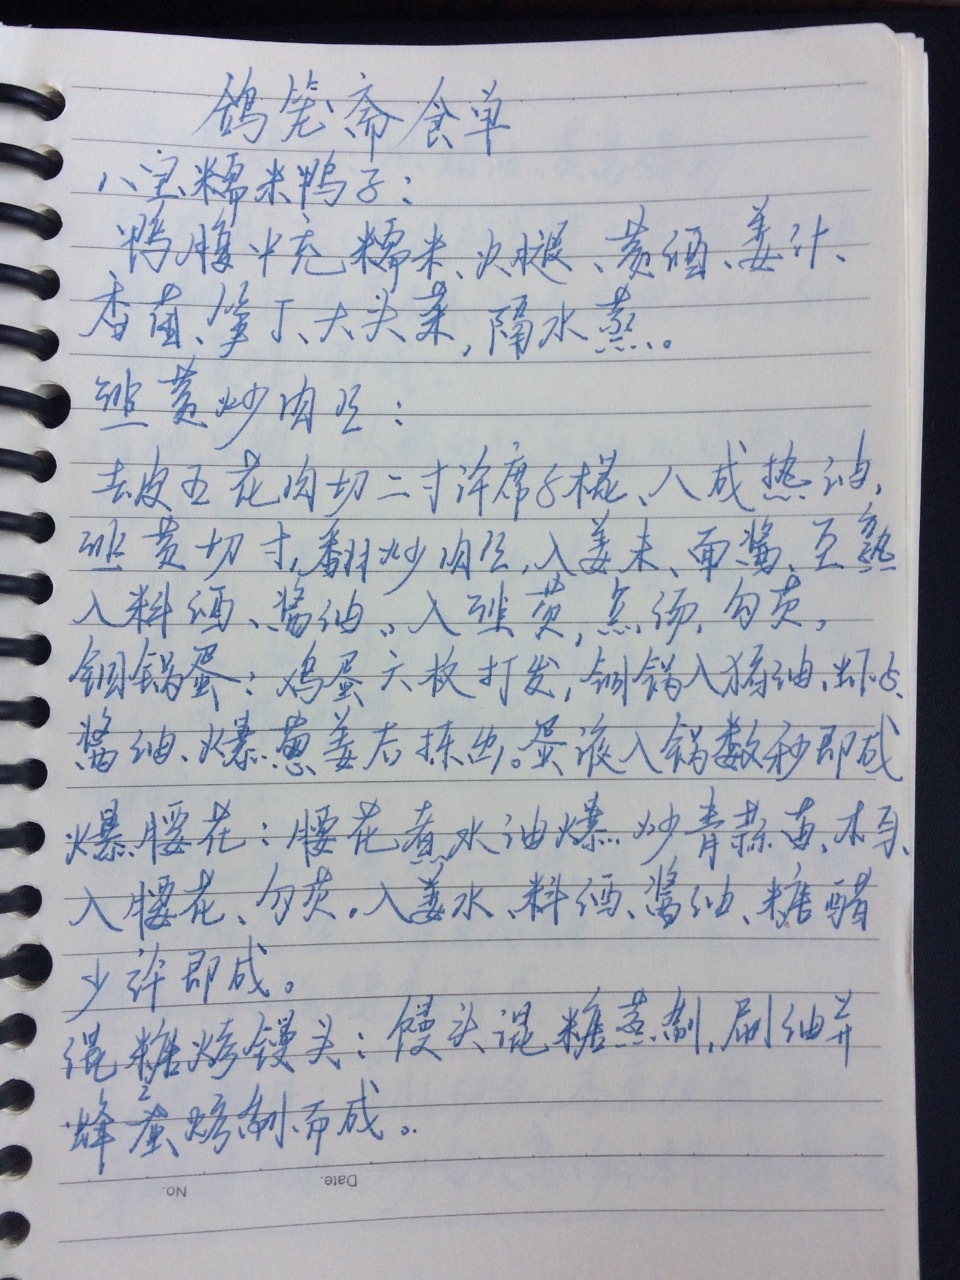 鸽笼斋食单
八宝糯米鸭子：
鸭腹中充糯米、火腿、黄酒、姜汁、
香菌、笋丁、大头菜，隔水蒸。
韭黄炒肉丝：
去皮五花肉切二寸许帘子棍、八成热油，
韭黄切寸，翻炒肉丝，入姜末、面酱、至熟
入料酒、酱油。入韭黄，点汤，勾芡。
铜锅蛋：鸡蛋六枚打发，铜锅入猪油、虾子、
酱油、爆葱姜后拣出。蛋液入锅数秒即成
爆腰花：腰花煮水油爆 炒青蒜苗、木耳、
入腰花、勾芡。入姜水、料酒、酱油、糖醋
少许即成。
混糖烤馒头：馒头混糖蒸制，刷油并
蜂蜜烤制而成。
No. Date.